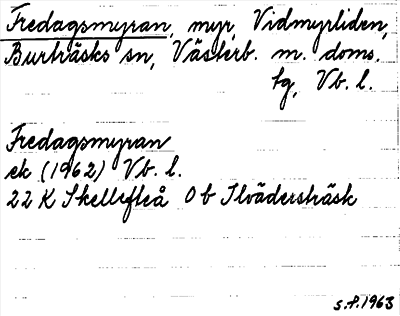 Fredagsmyran, myr, Vidmyrliden,
Burträsks sn, Västerb. m. doms.
tg, Vb. l.
Fredagsmyran
ek (1962) Vb. l.
22 K Skellefteå 0 b Ilvädersträsk
s.f. 1963